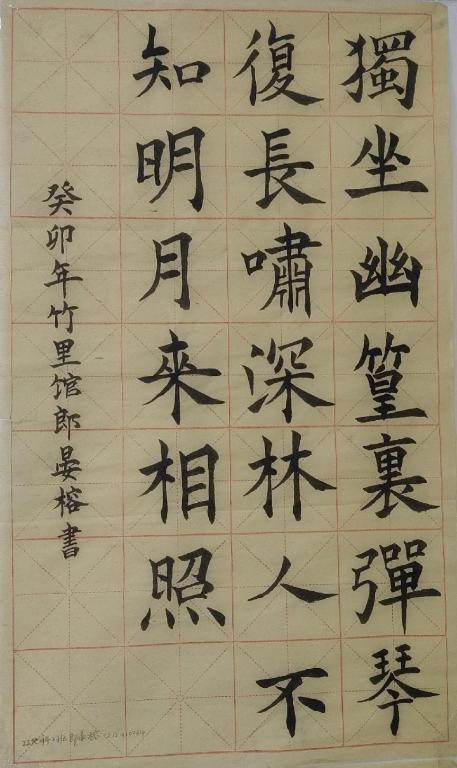 獨坐幽篁裏彈琴
復長嘯深林人不
知明月來相照
癸卯年竹里馆郎晏榕書